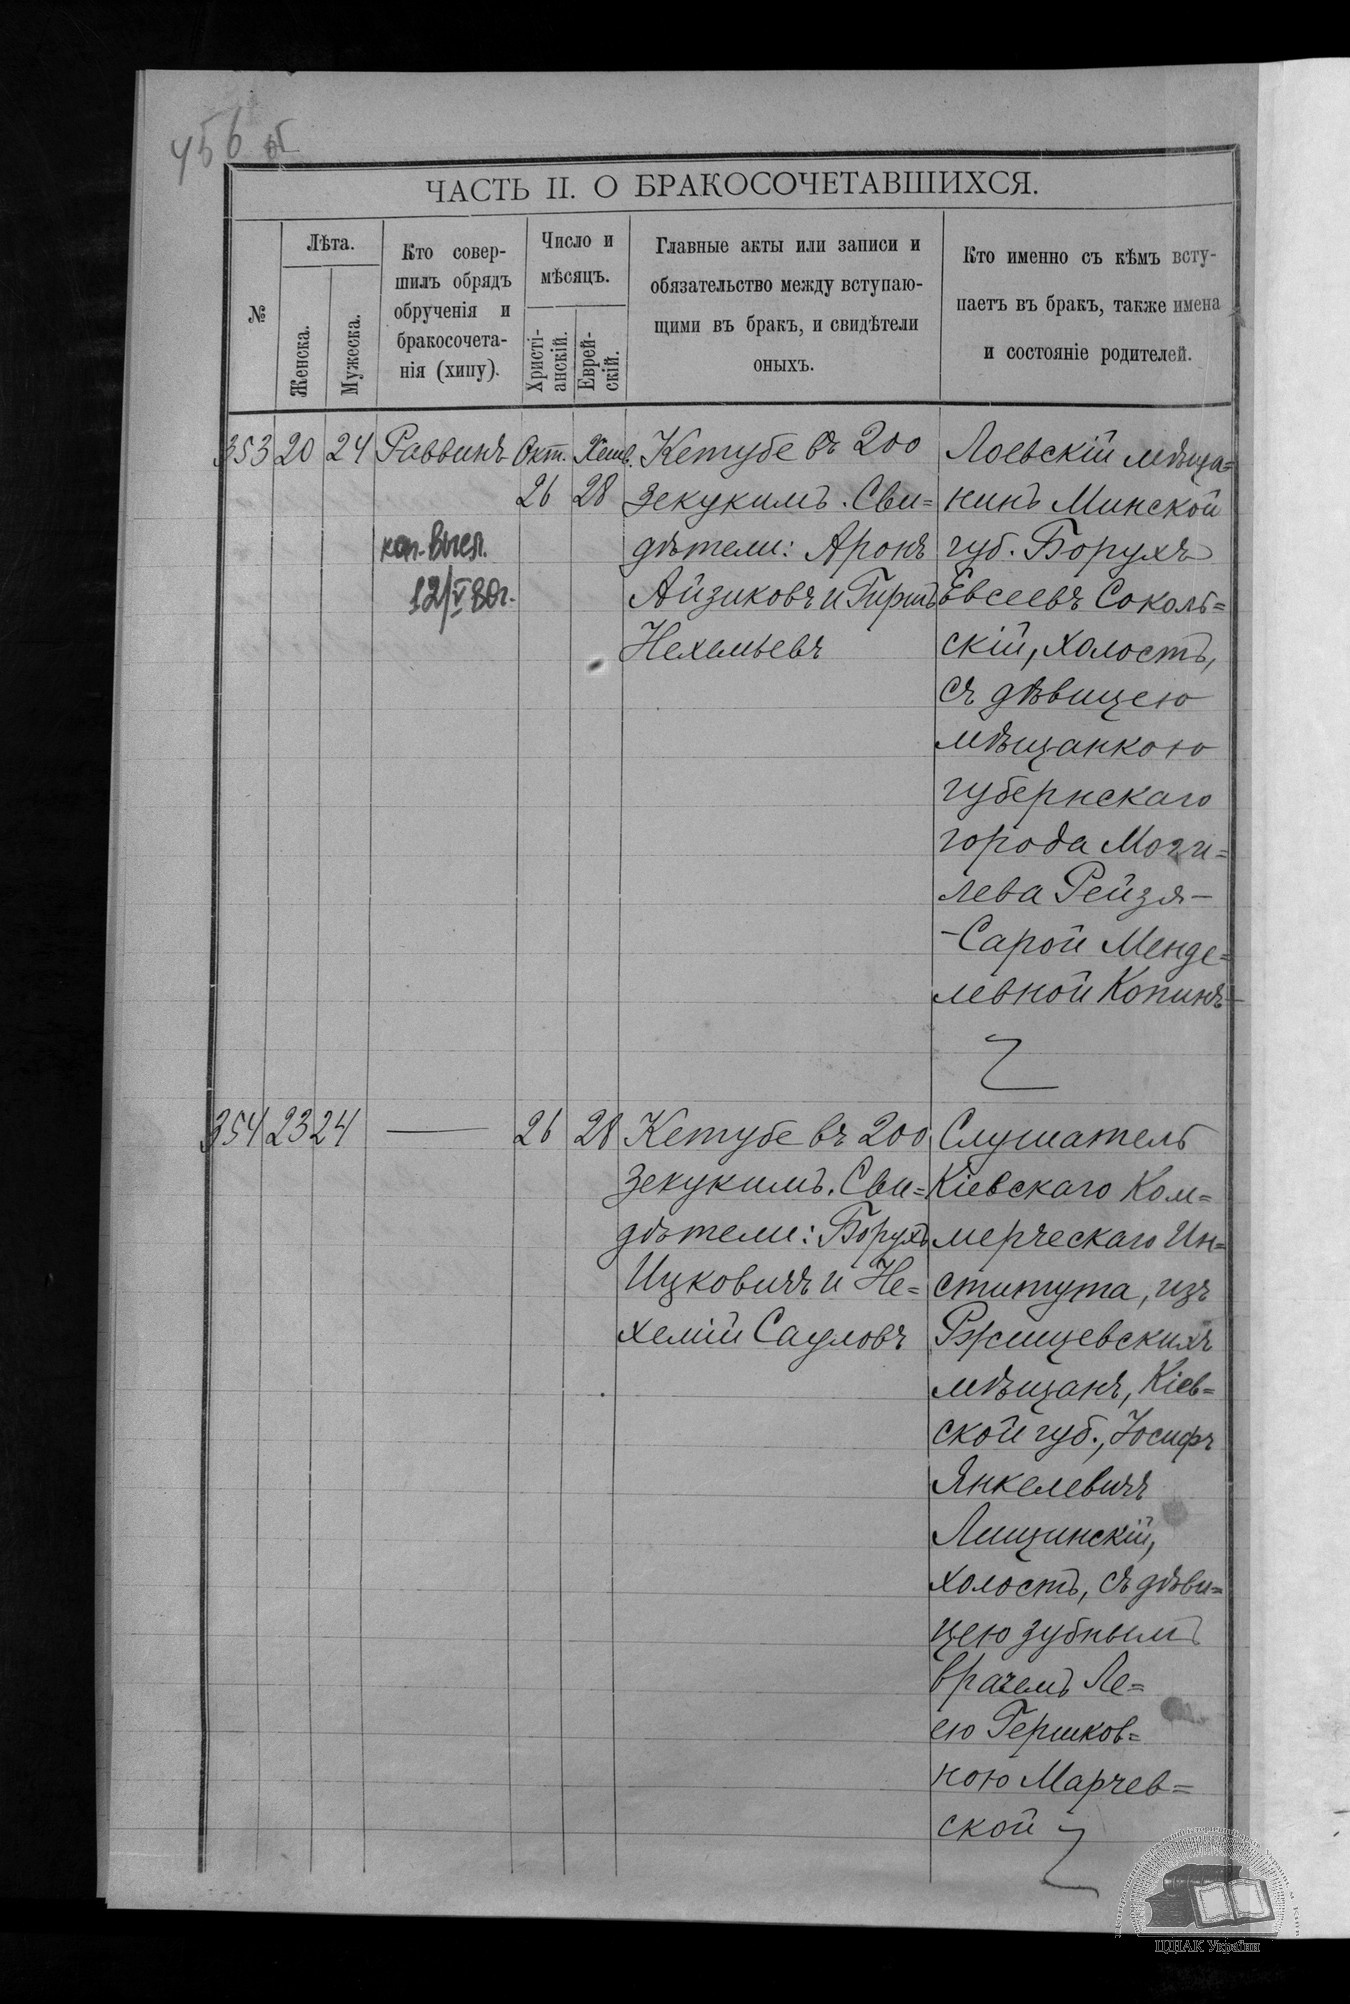 456 об
ЧАСТЬ II. О БРАКОСОЧЕТАВШИХСЯ.
№
Лѣта.
Женска.
Мужеска.
Кто совер-
шилъ обрядъ
обрученія и
бракосочета-
нія (хипу).
Число и
мѣсяцъ.
Христі-
анскій.
Еврей-
скій.
Главные акты или записи и
обязательство между вступаю-
щими въ бракъ, и свидѣтели
оныхъ.
Кто именно съ кѣмъ всту-
паетъ въ бракъ, также имена
и состояніе родителей.
353 20 24 Раввинъ
коп. высл.
12/V 30г.
Окт. Хешв.
26 28
Кетубе въ 200
зекукимъ. Сви=
дѣтели: Аронъ
Айзиковъ и Гиршъ
Нехемьевъ
Лоевскій мѣща=
нинъ Минской
губ. Борухъ
Евсеевъ Соколь=
скій, холостъ,
съ дѣвицею
мѣщанкою
губернскаго
города Моги=
лева Рейзя-
-Сарой Менде=
левной Копинъ
354 23 24 — 26 28
Кетубе въ 200
зекукимъ. Сви=
дѣтели: Борухъ
Ицковичъ и Не=
хемій Сауловъ
Слушатель
Кіевскаго Ком=
мерческаго Ин=
ститута, изъ
Ржищевскихъ
мѣщанъ, Кіев=
ской губ., Іосифъ
Янкелевичъ
Лищинскій,
холостъ, съ дѣви=
цею зубнымъ
врачемъ Ле=
ею Гершков=
ною Марчев=
ской
ЦДІАК України